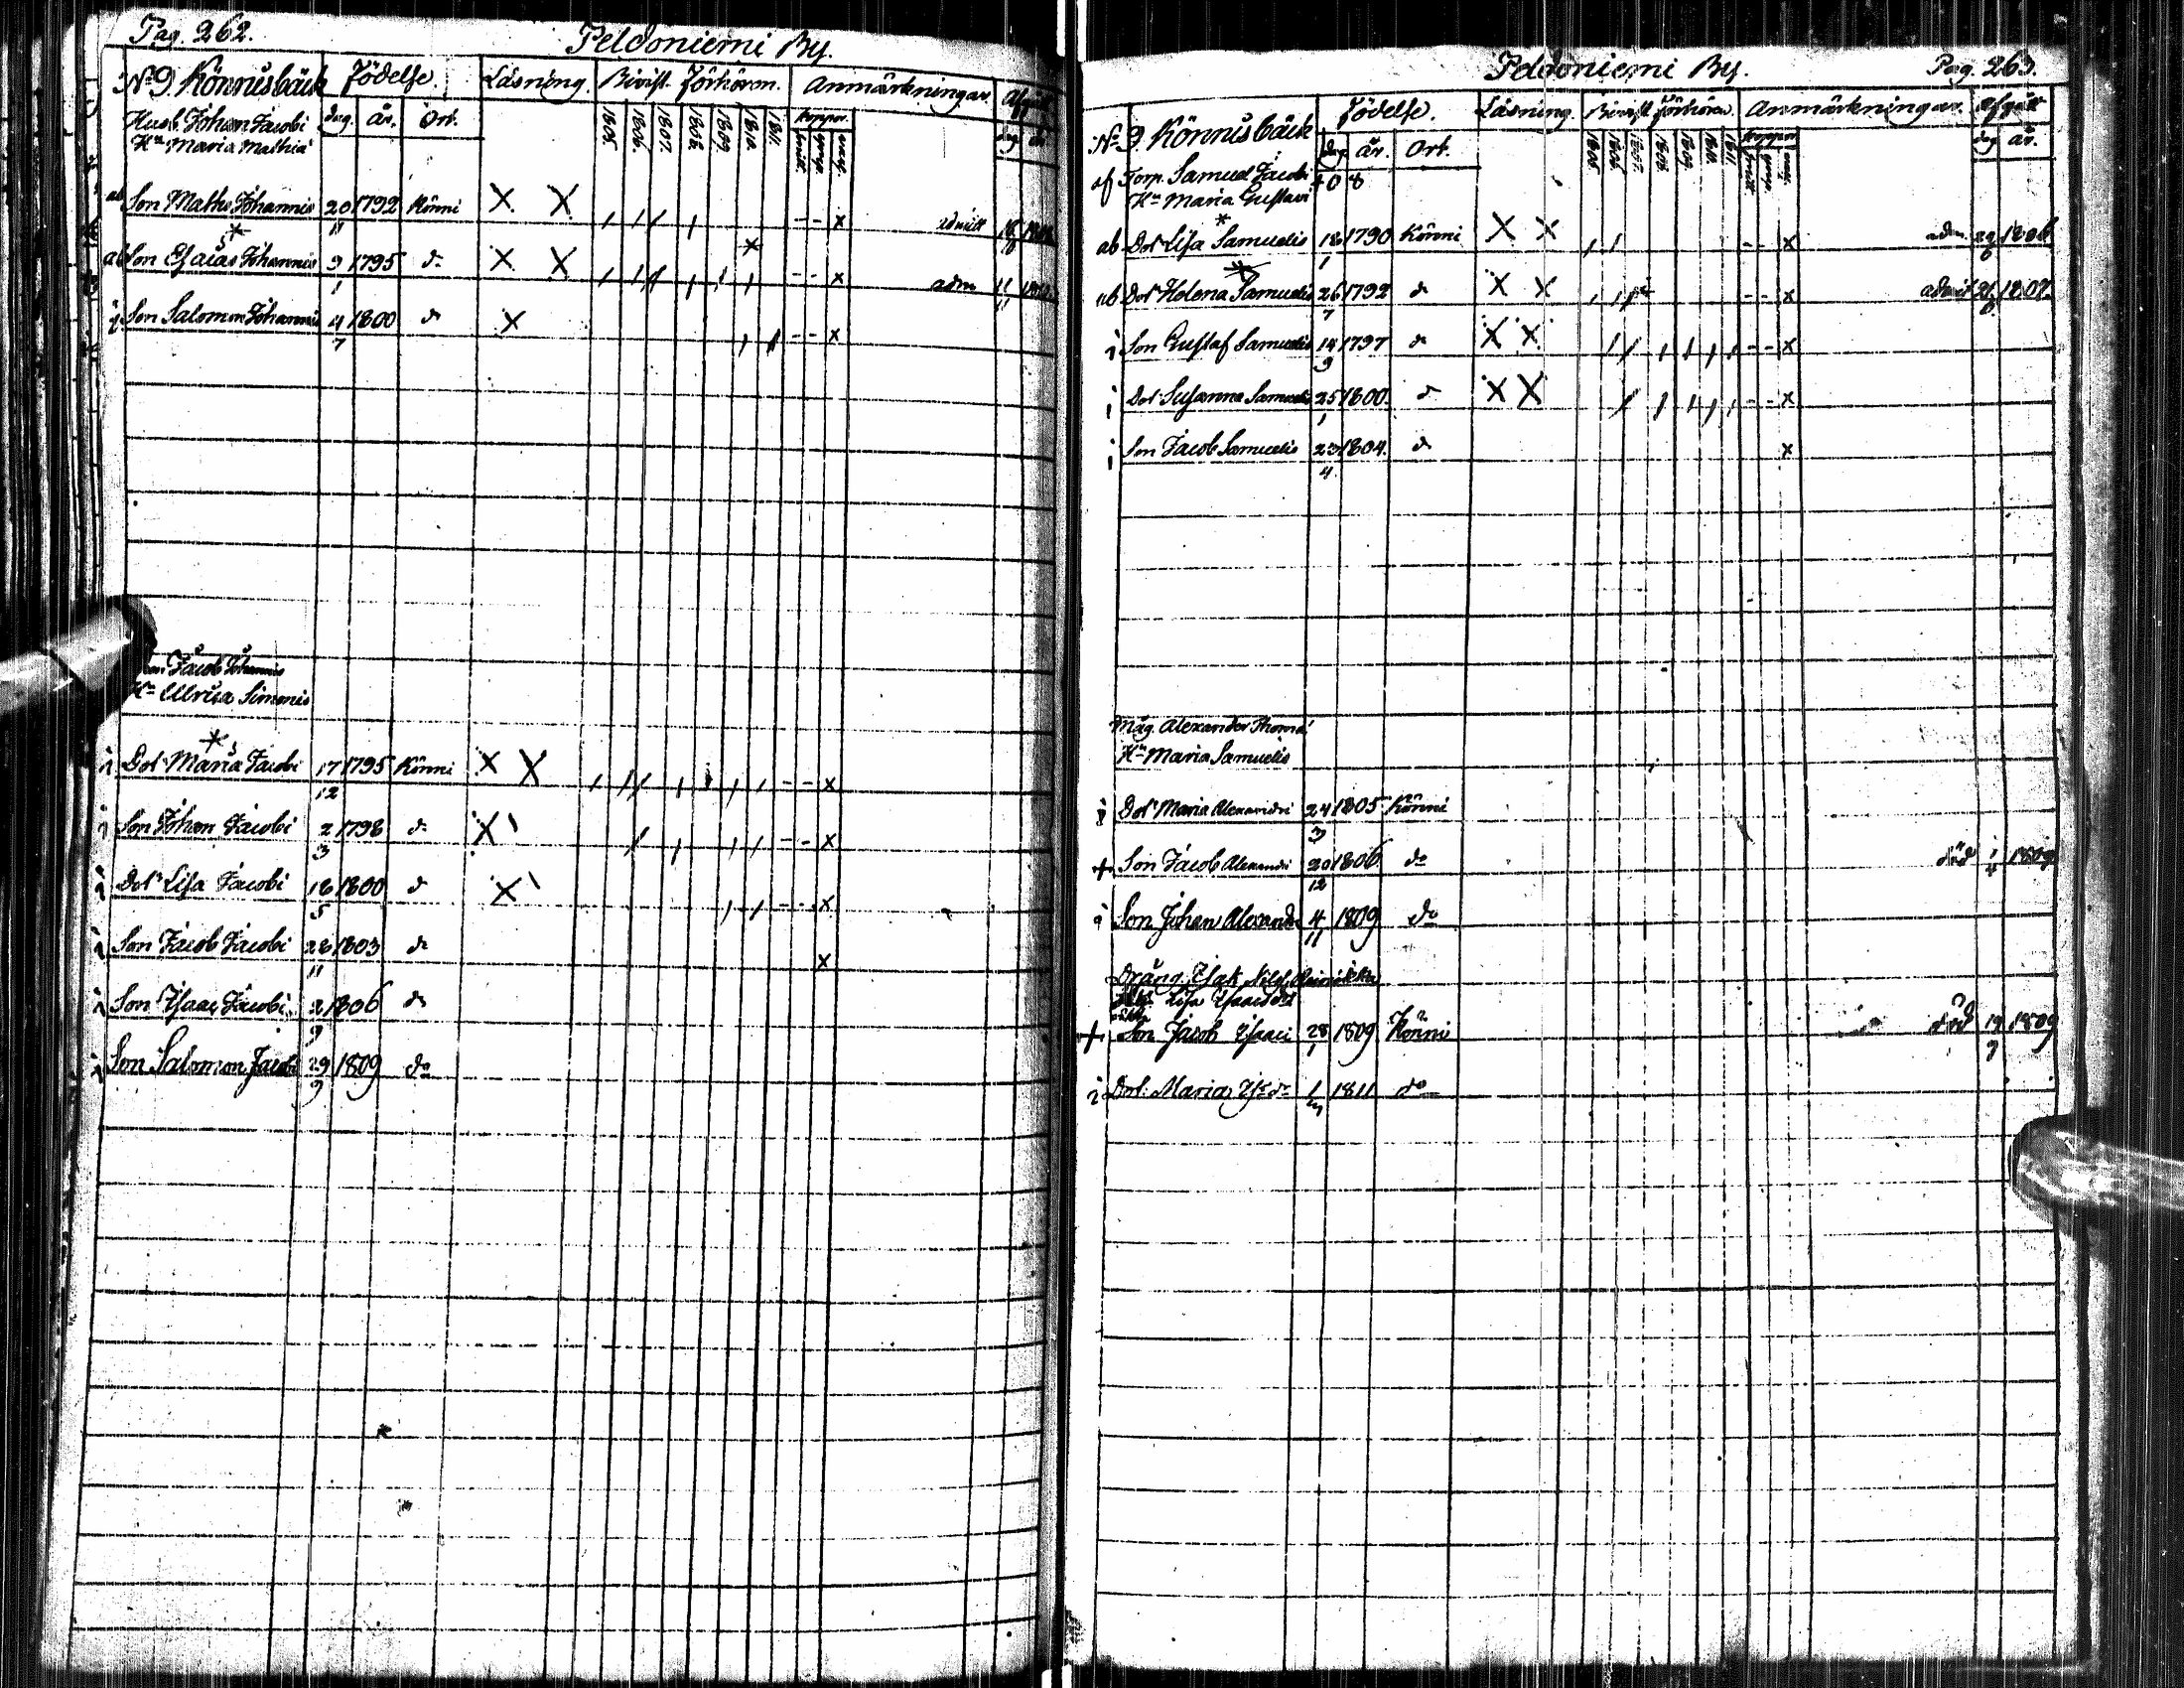 Pag. 262.
Peldoniemi By.
No 9. Könnusbäck Födelse. Läsning. Bivist. Förhören. Anmärkningar Afgått
Husb. Johan Jacobi dag. år. Ort. 1805. 1806. 1807. 1808. 1809. 1810. 1811. koppor. dag år
Hu Maria Mathiæ
ab Son Maths Johannis 20/11 1792 Könni X X - - x admitt
ab Son Esaias Johannis 9/1 1795 do X X - - x adm
i Son Salomon Johannis 4/7 1800 do X - - x
Jacob Johannis
Hu Ulrica Simonis
i Dotr Maria Jacobi 17/12 1795 Könni X X - - x
i Son Johan Jacobi 2/3 1798 do X - - x
i Dotr Lisa Jacobi 18/5 1800 do X - - x
i Son Jacob Jacobi 28/11 1803 do x
i Son Isaac Jacobi 2/9 1806 do
i Son Salomon Jacobi 29/9 1809 do
Peldoniemi By. Pag. 263.
No 9 Könnusbäck Födelse. Läsning. Bivist Förhören Anmärkningar. Afgått
dag år. Ort. 1805 1806. 1807. 1808. 1809. 1810. 1811 koppor dag år.
af Torp. Samuel Jacobi
Hu Maria Gustavi
ab Dotr Lisa Samuelis 18/1 1790 Könni X X - - x adm. 1806
ab Dotr Helena Samuelis 26/7 1792 do X X - - x admit 1807
i Son Gustaf Samuelis 14/9 1797 do X X - - x
i Dotr Susanna Samuelis 25/1 1800. do X X - - x
i Son Jacob Samuelis 23/4 1804. do x
Måg. Alexander Thomæ
Hu Maria Samuelis
i Dotr Maria Alexandri 24/3 1805 Könni
+ Son Jacob Alexandri 20/12 1806. do död 1809
i Son Johan Alexandri 4/11 1809 do
Dräng Isak Nils
Lisa Isaacsdr
+ Son Jacob Isaaci 28/1 1809 Könni död 19/9 1809
i Dotr. Maria Is dr 1811 do